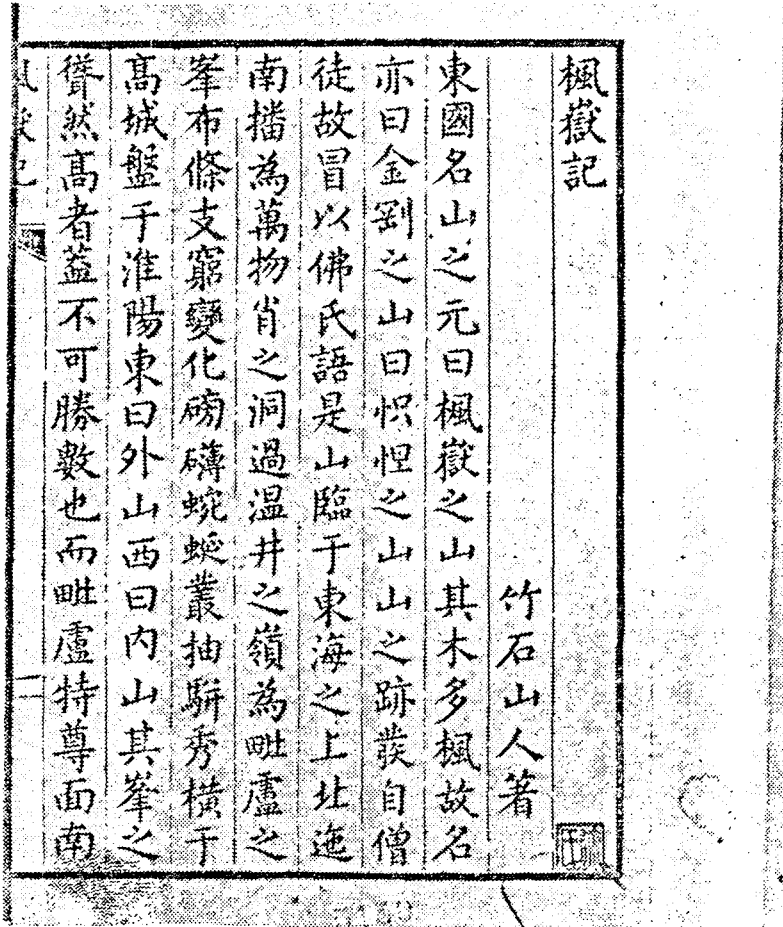 楓嶽記
竹石山人著
東國名山之元曰楓嶽之山其木多楓故名
亦曰金剛之山曰怾怛之山山之跡發自僧
徒故冒以佛氏語是山臨于東海之上北迤
南播為萬物肖之洞過温井之嶺為毗盧之
峯布條支窮變化磅礴蜿蜒叢抽騈秀橫于
高城盤于淮陽東曰外山西曰內山其峯之
聳然高者葢不可勝數也而毗盧特尊面南
楓嶽記